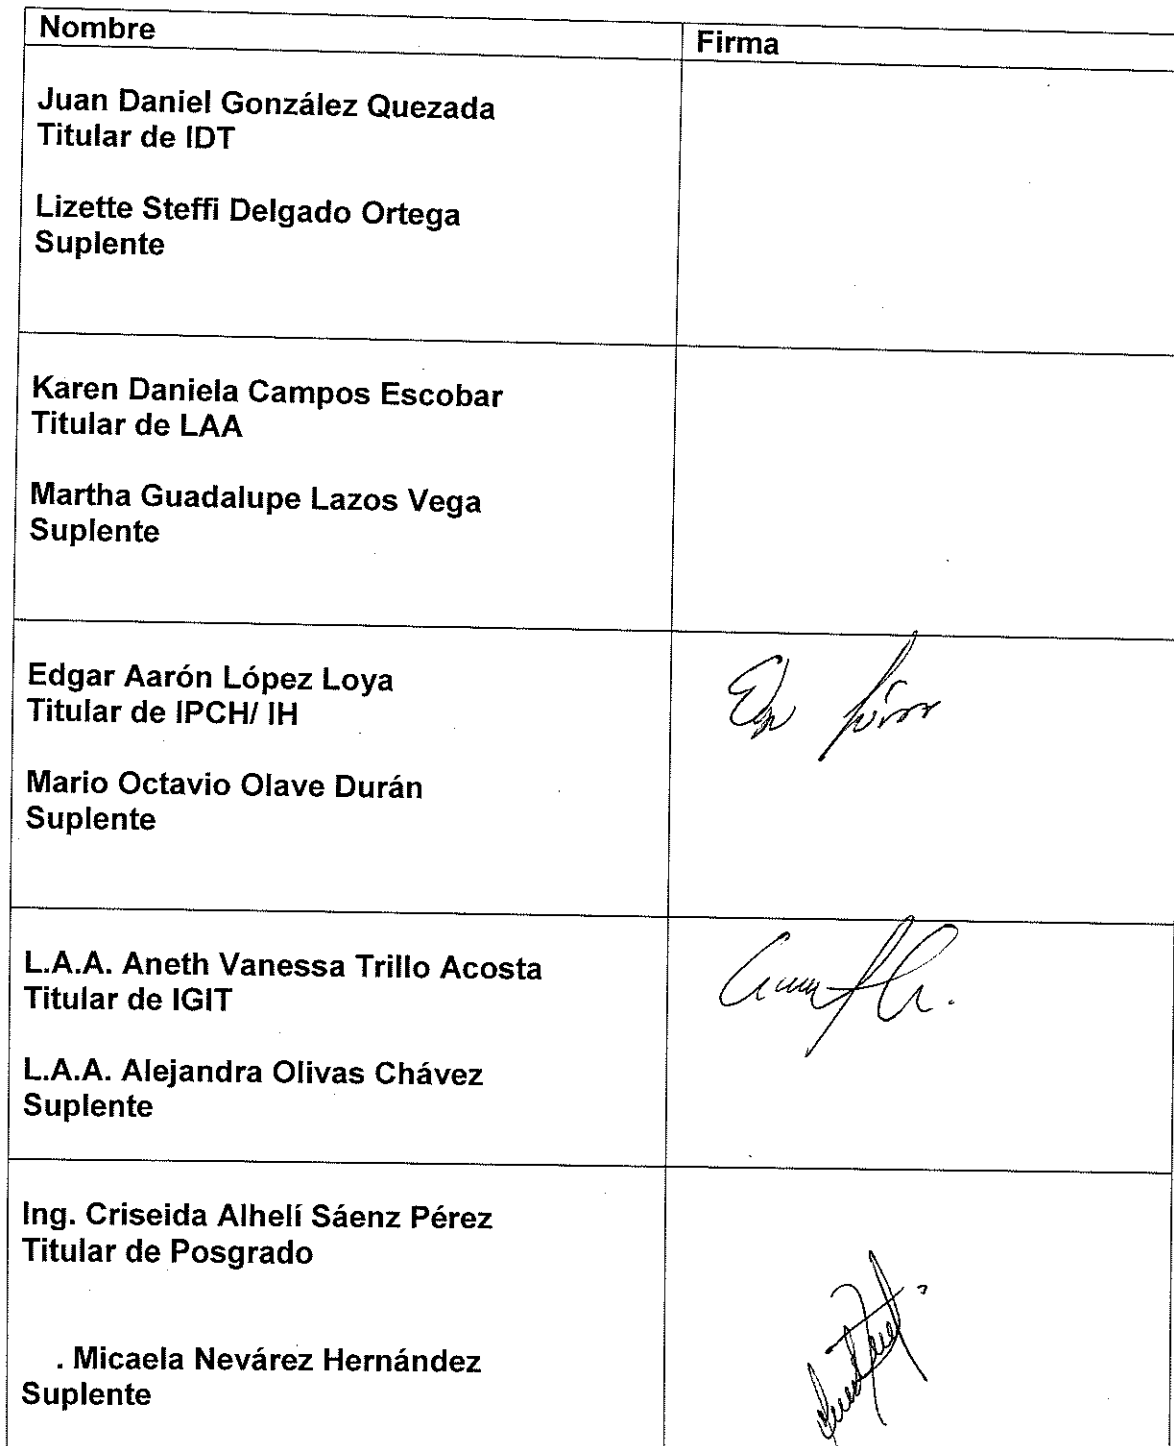 Nombre
Firma
Juan Daniel González Quezada
Titular de IDT
Lizette Steffi Delgado Ortega
Suplente
Karen Daniela Campos Escobar
Titular de LAA
Martha Guadalupe Lazos Vega
Suplente
Edgar Aarón López Loya
Titular de IPCH/ IH
Mario Octavio Olave Durán
Suplente
L.A.A. Aneth Vanessa Trillo Acosta
Titular de IGIT
L.A.A. Alejandra Olivas Chávez
Suplente
Ing. Criseida Alhelí Sáenz Pérez
Titular de Posgrado
. Micaela Nevárez Hernández
Suplente